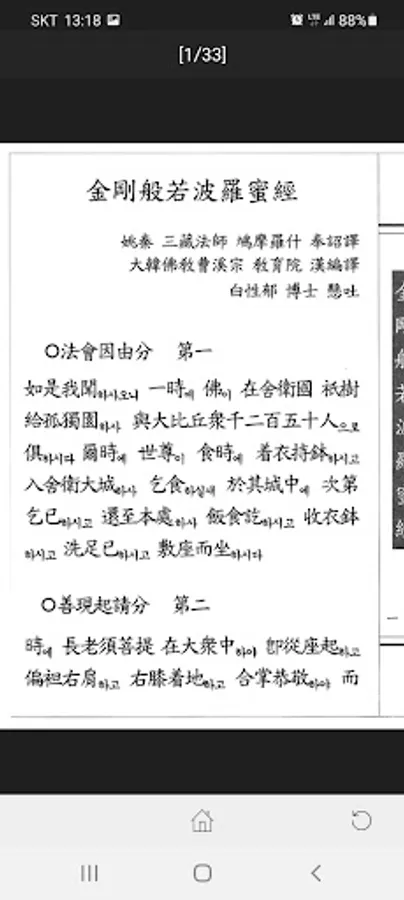 SKT 13:18 88%
[1/33]
金剛般若波羅蜜經
姚秦 三藏法師 鳩摩羅什 奉詔譯
大韓佛敎曹溪宗 敎育院 漢編譯
白性郁 博士 懸吐
○法會因由分 第一
如是我聞하사오니 一時에 佛이 在舍衛國 祇樹
給孤獨園하사 與大比丘衆千二百五十人으로
俱하시다 爾時에 世尊이 食時에 着衣持鉢하시고
入舍衛大城하사 乞食하실새 於其城中에 次第
乞已하시고 還至本處하사 飯食訖하시고 收衣鉢
하시고 洗足已하시고 敷座而坐하시다
○善現起請分 第二
時에 長老須菩提 在大衆中하야 卽從座起하고
偏袒右肩하고 右膝着地하고 合掌恭敬하야 而
金剛般若波羅蜜經